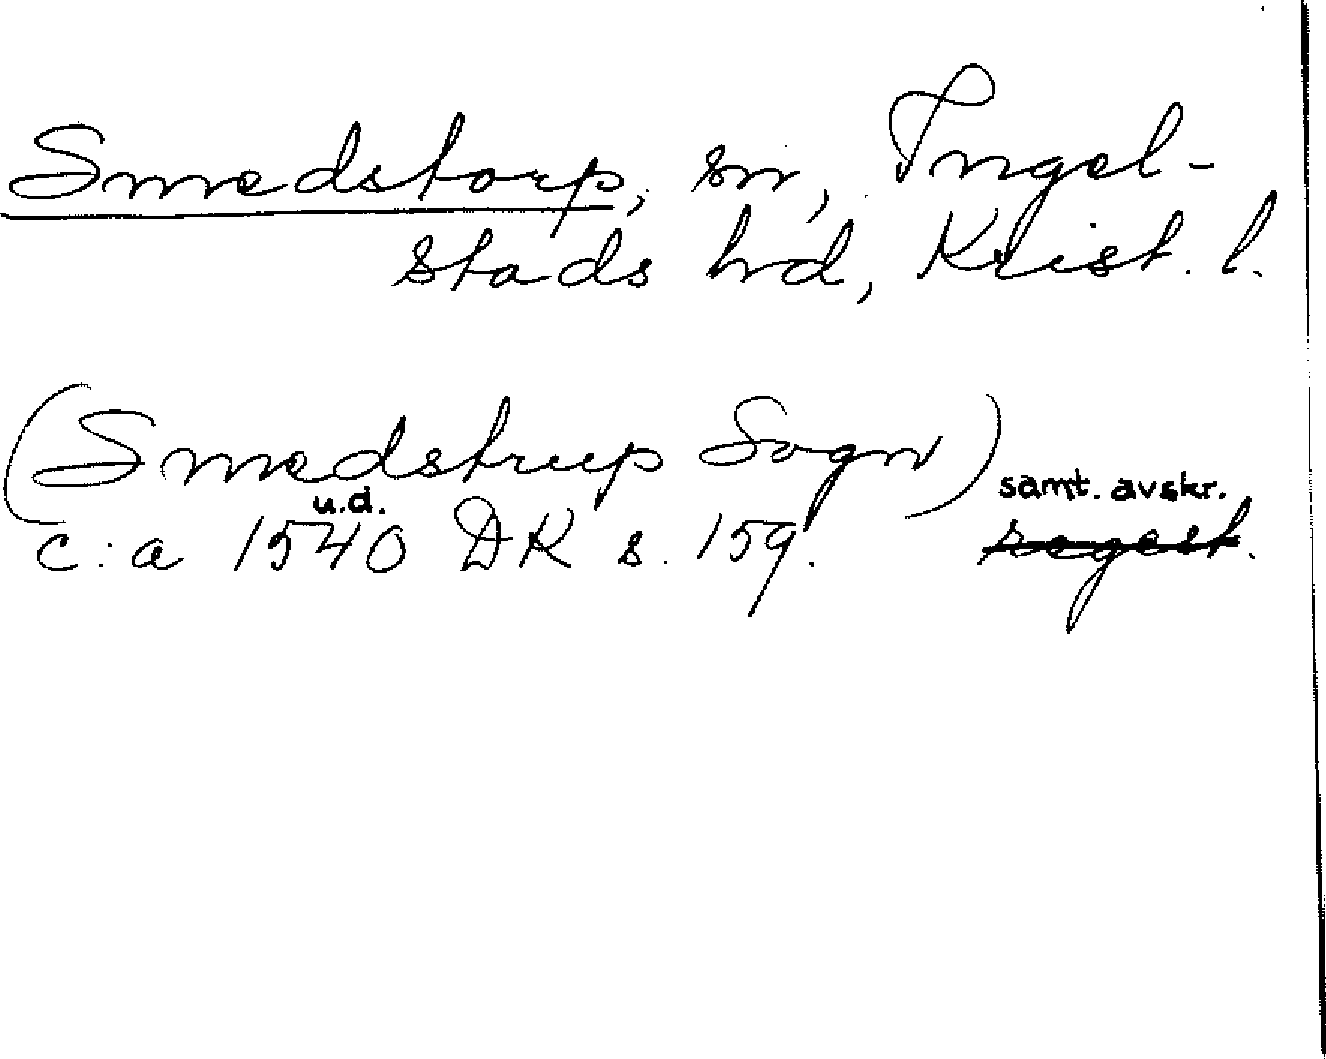 Smedstorp, sn, Ingel-
stads hd, Krist. l.
(Smedstrup Sogn)
samt. avskr.
u.d.
c:a 1540 DK s. 159. regest.